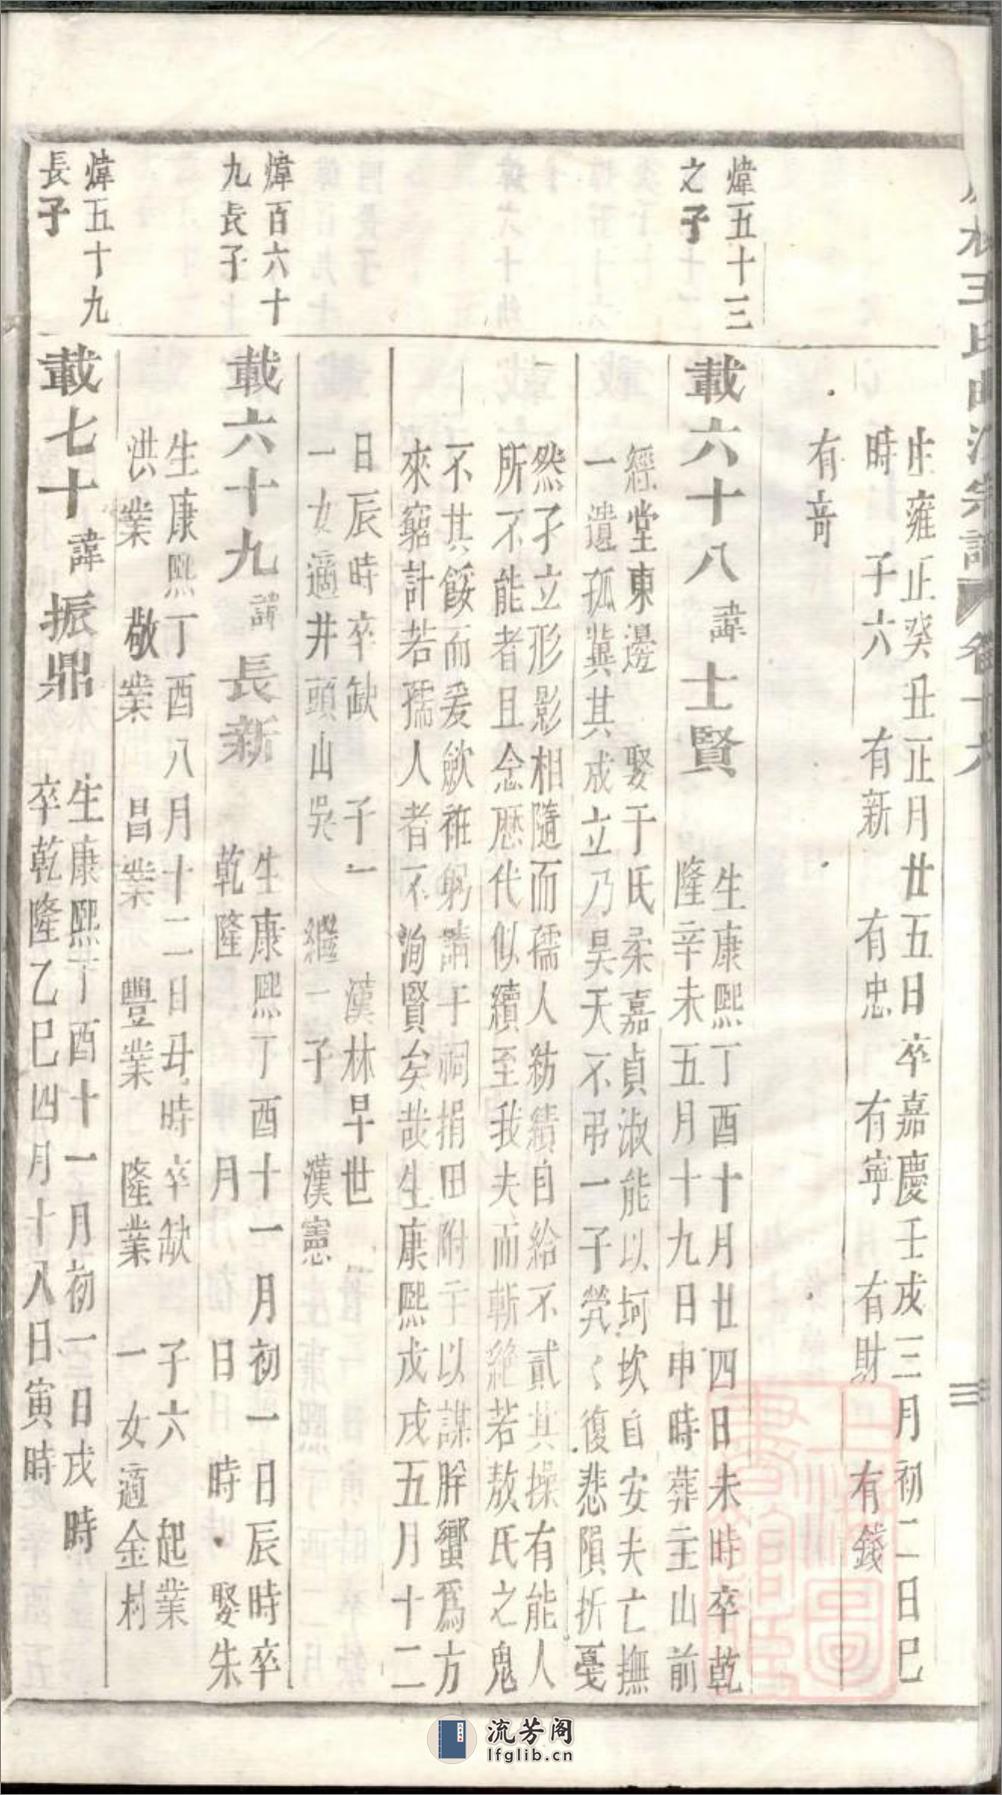 王氏曲江宗譜 卷十六
三
生雍正癸丑正月廿五日卒嘉慶壬戌三月初二日巳
時 子六 有新 有忠 有寧 有財 有錢
有奇
煒五十三
之子
載六十八 諱 士賢
生康熙丁酉十月廿四日未時卒乾
隆辛未五月十九日申時葬主山前
經堂東邊 娶于氏柔嘉貞淑能以坷坎自安夫亡撫
一遺孤冀其成立乃昊天不弔一子煢〻復悲隕折憂
然孑立形影相隨而孺人紡績自給不貳其操有能人
所不能者且念歷代似續至我夫而斬絶若敖氏之鬼
不其餒而爰歛袵躬請于祠捐田附于以謀肸蠁爲方
來窮計若孺人者不洵賢矣哉生康熙戊戌五月十二
日辰時卒缺 子一 漢林早世
一女適井頭山吳 繼一子 漢憲
煒百六十
九長子
載六十九 諱 長新
生康熙丁酉十一月初一日辰時卒
乾隆 月 日 時 娶朱
生康熙丁酉八月十二日丑時卒缺 子六 起業
洪業 敬業 昌業 豐業 隆業 一女適金村
煒五十九
長子
載七十 諱 振鼎
生康熙丁酉十一月初一日戌時
卒乾隆乙巳四月十八日寅時
流芳阁
lfglib.cn